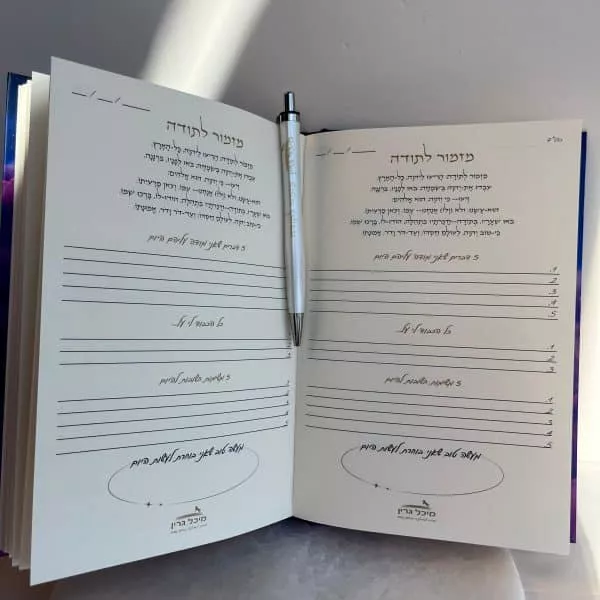 בס"ד
מזמור לתודה
מִזְמוֹר לְתוֹדָה, הָרִיעוּ לַיהוָה, כָּל-הָאָרֶץ.
עִבְדוּ אֶת-יְהוָה בְּשִׂמְחָה, בֹּאוּ לְפָנָיו, בִּרְנָנָה.
דְּעוּ-- כִּי יְהוָה, הוּא אֱלֹהִים:
הוּא-עָשָׂנוּ, ולא (וְלוֹ) אֲנַחְנוּ-- עַמּוֹ, וְצֹאן מַרְעִיתוֹ.
בֹּאוּ שְׁעָרָיו, בְּתוֹדָה--חֲצֵרֹתָיו בִּתְהִלָּה; הוֹדוּ-לוֹ, בָּרְכוּ שְׁמוֹ.
כִּי-טוֹב יְהוָה, לְעוֹלָם חַסְדּוֹ; וְעַד-דֹּר וָדֹר, אֱמוּנָתוֹ.
5 דברים שאני מודה עליהם היום
1.
2
3
4.
5
כל הכבוד לי על...
1.
2
3
5 משימות חשובות להיום
1.
2
3
4.
5
מעשה טוב שאני בוחרת לעשות היום
מיכל גרין
מזמור לתודה
מִזְמוֹר לְתוֹדָה, הָרִיעוּ לַיהוָה, כָּל-הָאָרֶץ.
עִבְדוּ אֶת-יְהוָה בְּשִׂמְחָה, בֹּאוּ לְפָנָיו, בִּרְנָנָה.
דְּעוּ-- כִּי יְהוָה, הוּא אֱלֹהִים:
הוּא-עָשָׂנוּ, ולא (וְלוֹ) אֲנַחְנוּ-- עַמּוֹ, וְצֹאן מַרְעִיתוֹ.
בֹּאוּ שְׁעָרָיו, בְּתוֹדָה--חֲצֵרֹתָיו בִּתְהִלָּה; הוֹדוּ-לוֹ, בָּרְכוּ שְׁמוֹ.
כִּי-טוֹב יְהוָה, לְעוֹלָם חַסְדּוֹ; וְעַד-דֹּר וָדֹר, אֱמוּנָתוֹ.
5 דברים שאני מודה עליהם היום
כל הכבוד לי על...
5 משימות חשובות להיום
מעשה טוב שאני בוחרת לעשות היום
מיכל גרין